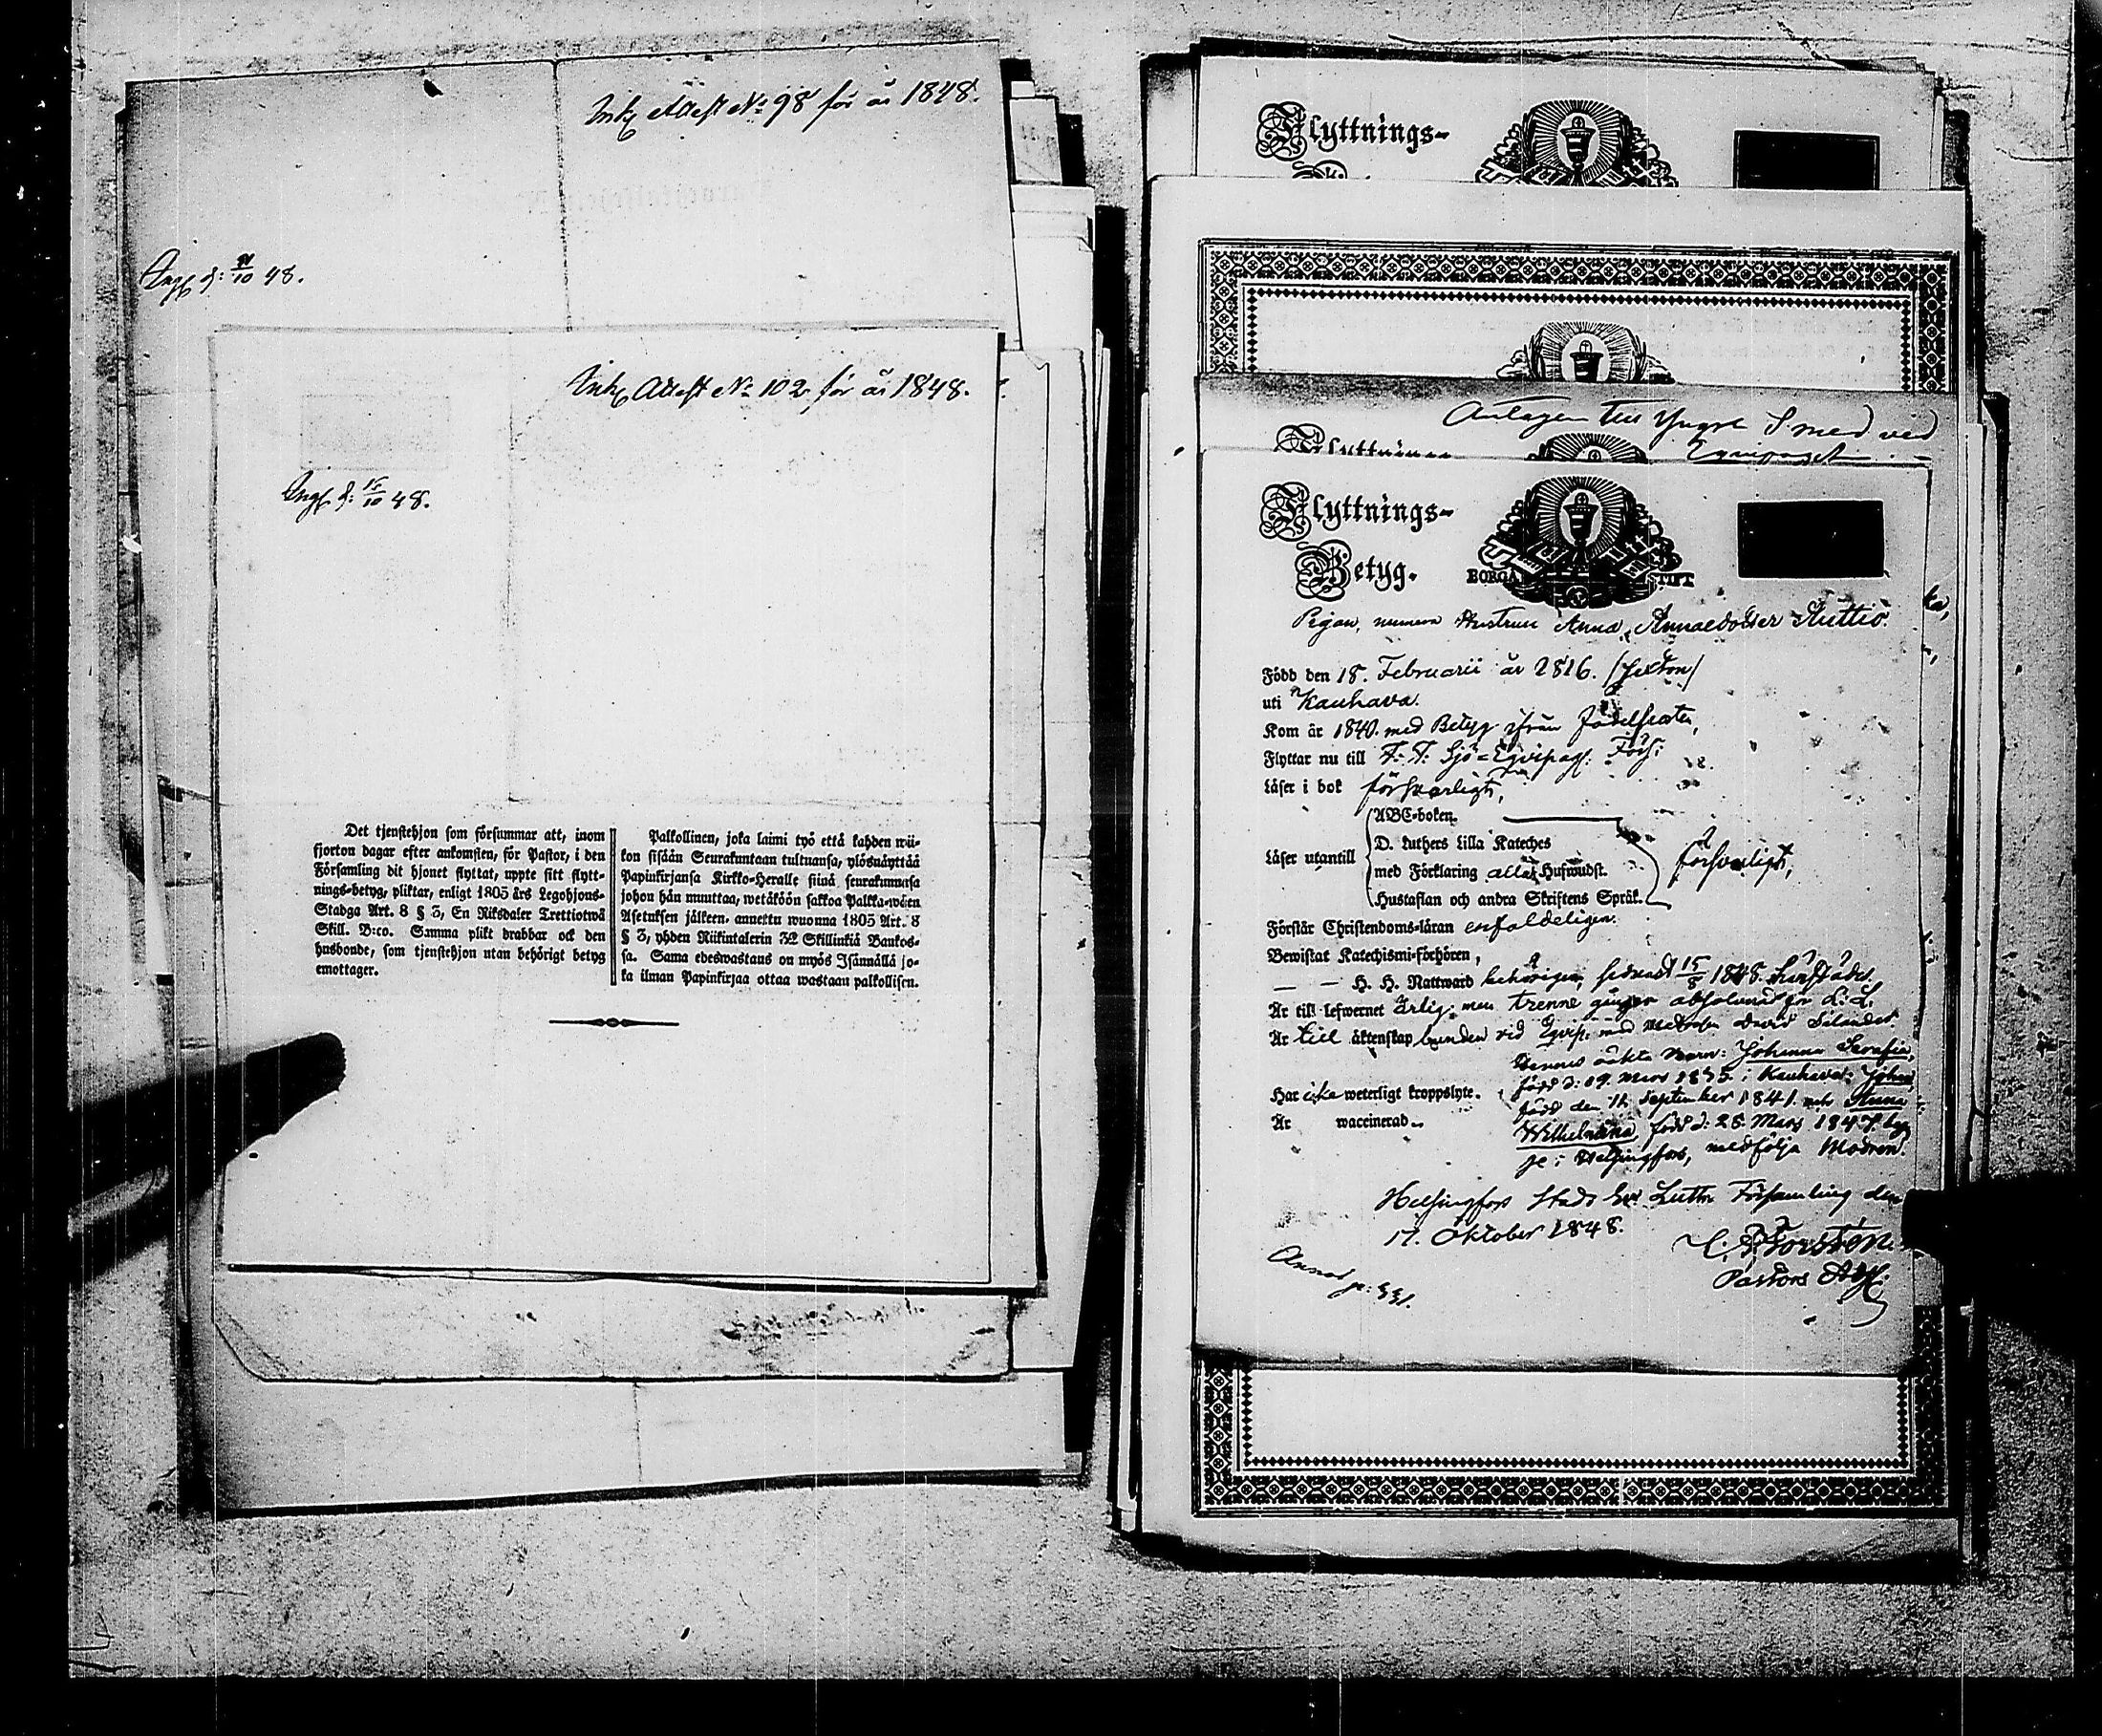 Attest No 98 för år 1848.
d: 10 48.
Attest No 102 för år 1848.
d: 15/10 48.
Det tjenstehjon som försummar att, inom
fjorton dagar efter ankomsten, för Pastor, i den
Församling dit hjonet flyttat, uppte sitt flytt-
nings-betyg, pliktar, enligt 1805 års Legohjons-
Stadga Art. 8 § 3, En Riksdaler Trettiotwå
Skill. B:co. Samma plikt drabbar ock den
husbonde, som tjenstehjon utan behörigt betyg
emottager.
Palkollinen, joka laimi lyö että kahden wii-
kon sisään Seurakuntaan tultuansa, ylösnäyttää
Papinkirjansa Kirkko-Heralle siinä seurakunnasa
johon hän muuttaa, wetäköön sakkoa Palkka-wäen
Asetuksen jälkeen, annettu wuonna 1805 Art. 8
§ 3, yhden Riikintalerin 32 Skillinkiä Bankos-
sa. Sama edeswastaus on myös Isännällä jo-
ka ilman Papinkirjaa ottaa wastaan palkollisen.
Flyttnings-
Antagen till Yngre Smed ved
Flyttnings-
Flyttnings-
Betyg.
BORGÅ STIFT
Pigan, numera Hustrun Anna
Född den 18. Februarii år 1816. /Sexton/
uti Kauhava.
Kom år 1840. med Betyg ifrån
Flyttar nu till F. F. Sjö-Eqvipag. Förs:
Läser i bok försvarligt,
ABC-boken.
Läser utantill
D. Luthers Lilla Kateches
med Förklaring alla Hufwudst.
Hustaflan och andra Skriftens Språk.
försvarligt,
Förstår Christendoms-läran enfaldeligen.
Bewistat Katechismi-förhören,
— — H. H. Nattward behörigen, sednast 15/8 1848.
Är till lefwernet ärlig, men trenne gånger absolverad för L: L.
Är till äktenskap bunden vid Eqvip. med David
barn: Johanna Serafia,
född d: 19. Mars i Kauhava: Johan
Har icke weterligt kroppslyte.
född den September 1841. Anna
Är waccinerad
Wilhelmina, född d: 28. Mars 1847.
i Helsingfors, medfölja Modren.
Helsingfors Stads Ev. Luth. Församling den
17. Oktober 1848.
Forstén.
Pastors Adj.